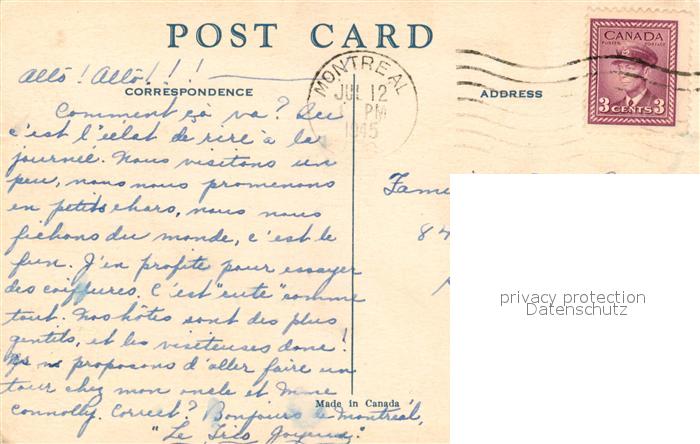 POST CARD
CANADA
POSTES POSTAGE
3 CENTS 3
MONTREAL
JUL 12
PM
1945
CORRESPONDENCE
ADDRESS
Allô! Allô! ! ! !
Comment ça va? Ici
c'est l'éclat de rire à la
journée. Nous visitons un
peu, nous nous promenons
en petits chars, nous nous
fichons du monde, c'est le
fun. J'en profite pour essayer
des coiffures. C'est "cute" comme
tout. Nos hôtes sont des plus
gentils, et les visiteuses donc!
ns proposons d'aller faire un
tour chez mon oncle et Mme
Connolly. Correct? Bonjours de Montréal,
"Le Trio Joyeux."
Made in Canada
Fami
84
privacy protection
Datenschutz